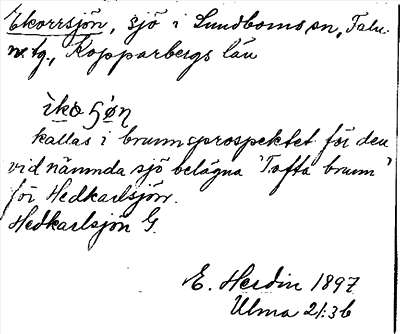 Ekorrsjön, sjö i Lundboms sn, Falu
n. tg., Kopparbergs län
ìko 5 ø̀n
kallas i brunnsprospektet för den
vid nämnda sjö belägna "Tofta brunn"
för Hedkarlsjön.
Hedkarlsjön G.
E. Herdin 1897
Ulma 21:36